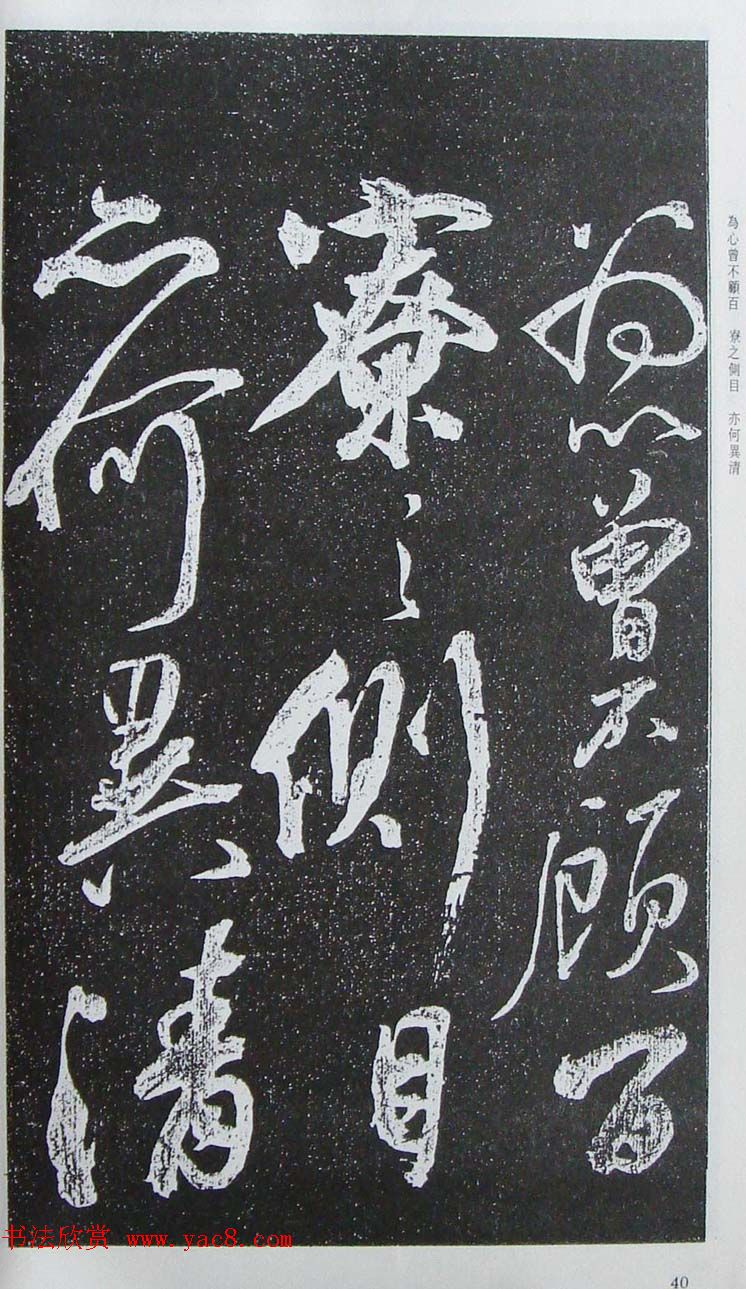 為心曾不顧百
寮之側目
亦何異清
為心曾不顧百　寮之側目　亦何異清
书法欣赏 www.yac8.com
40